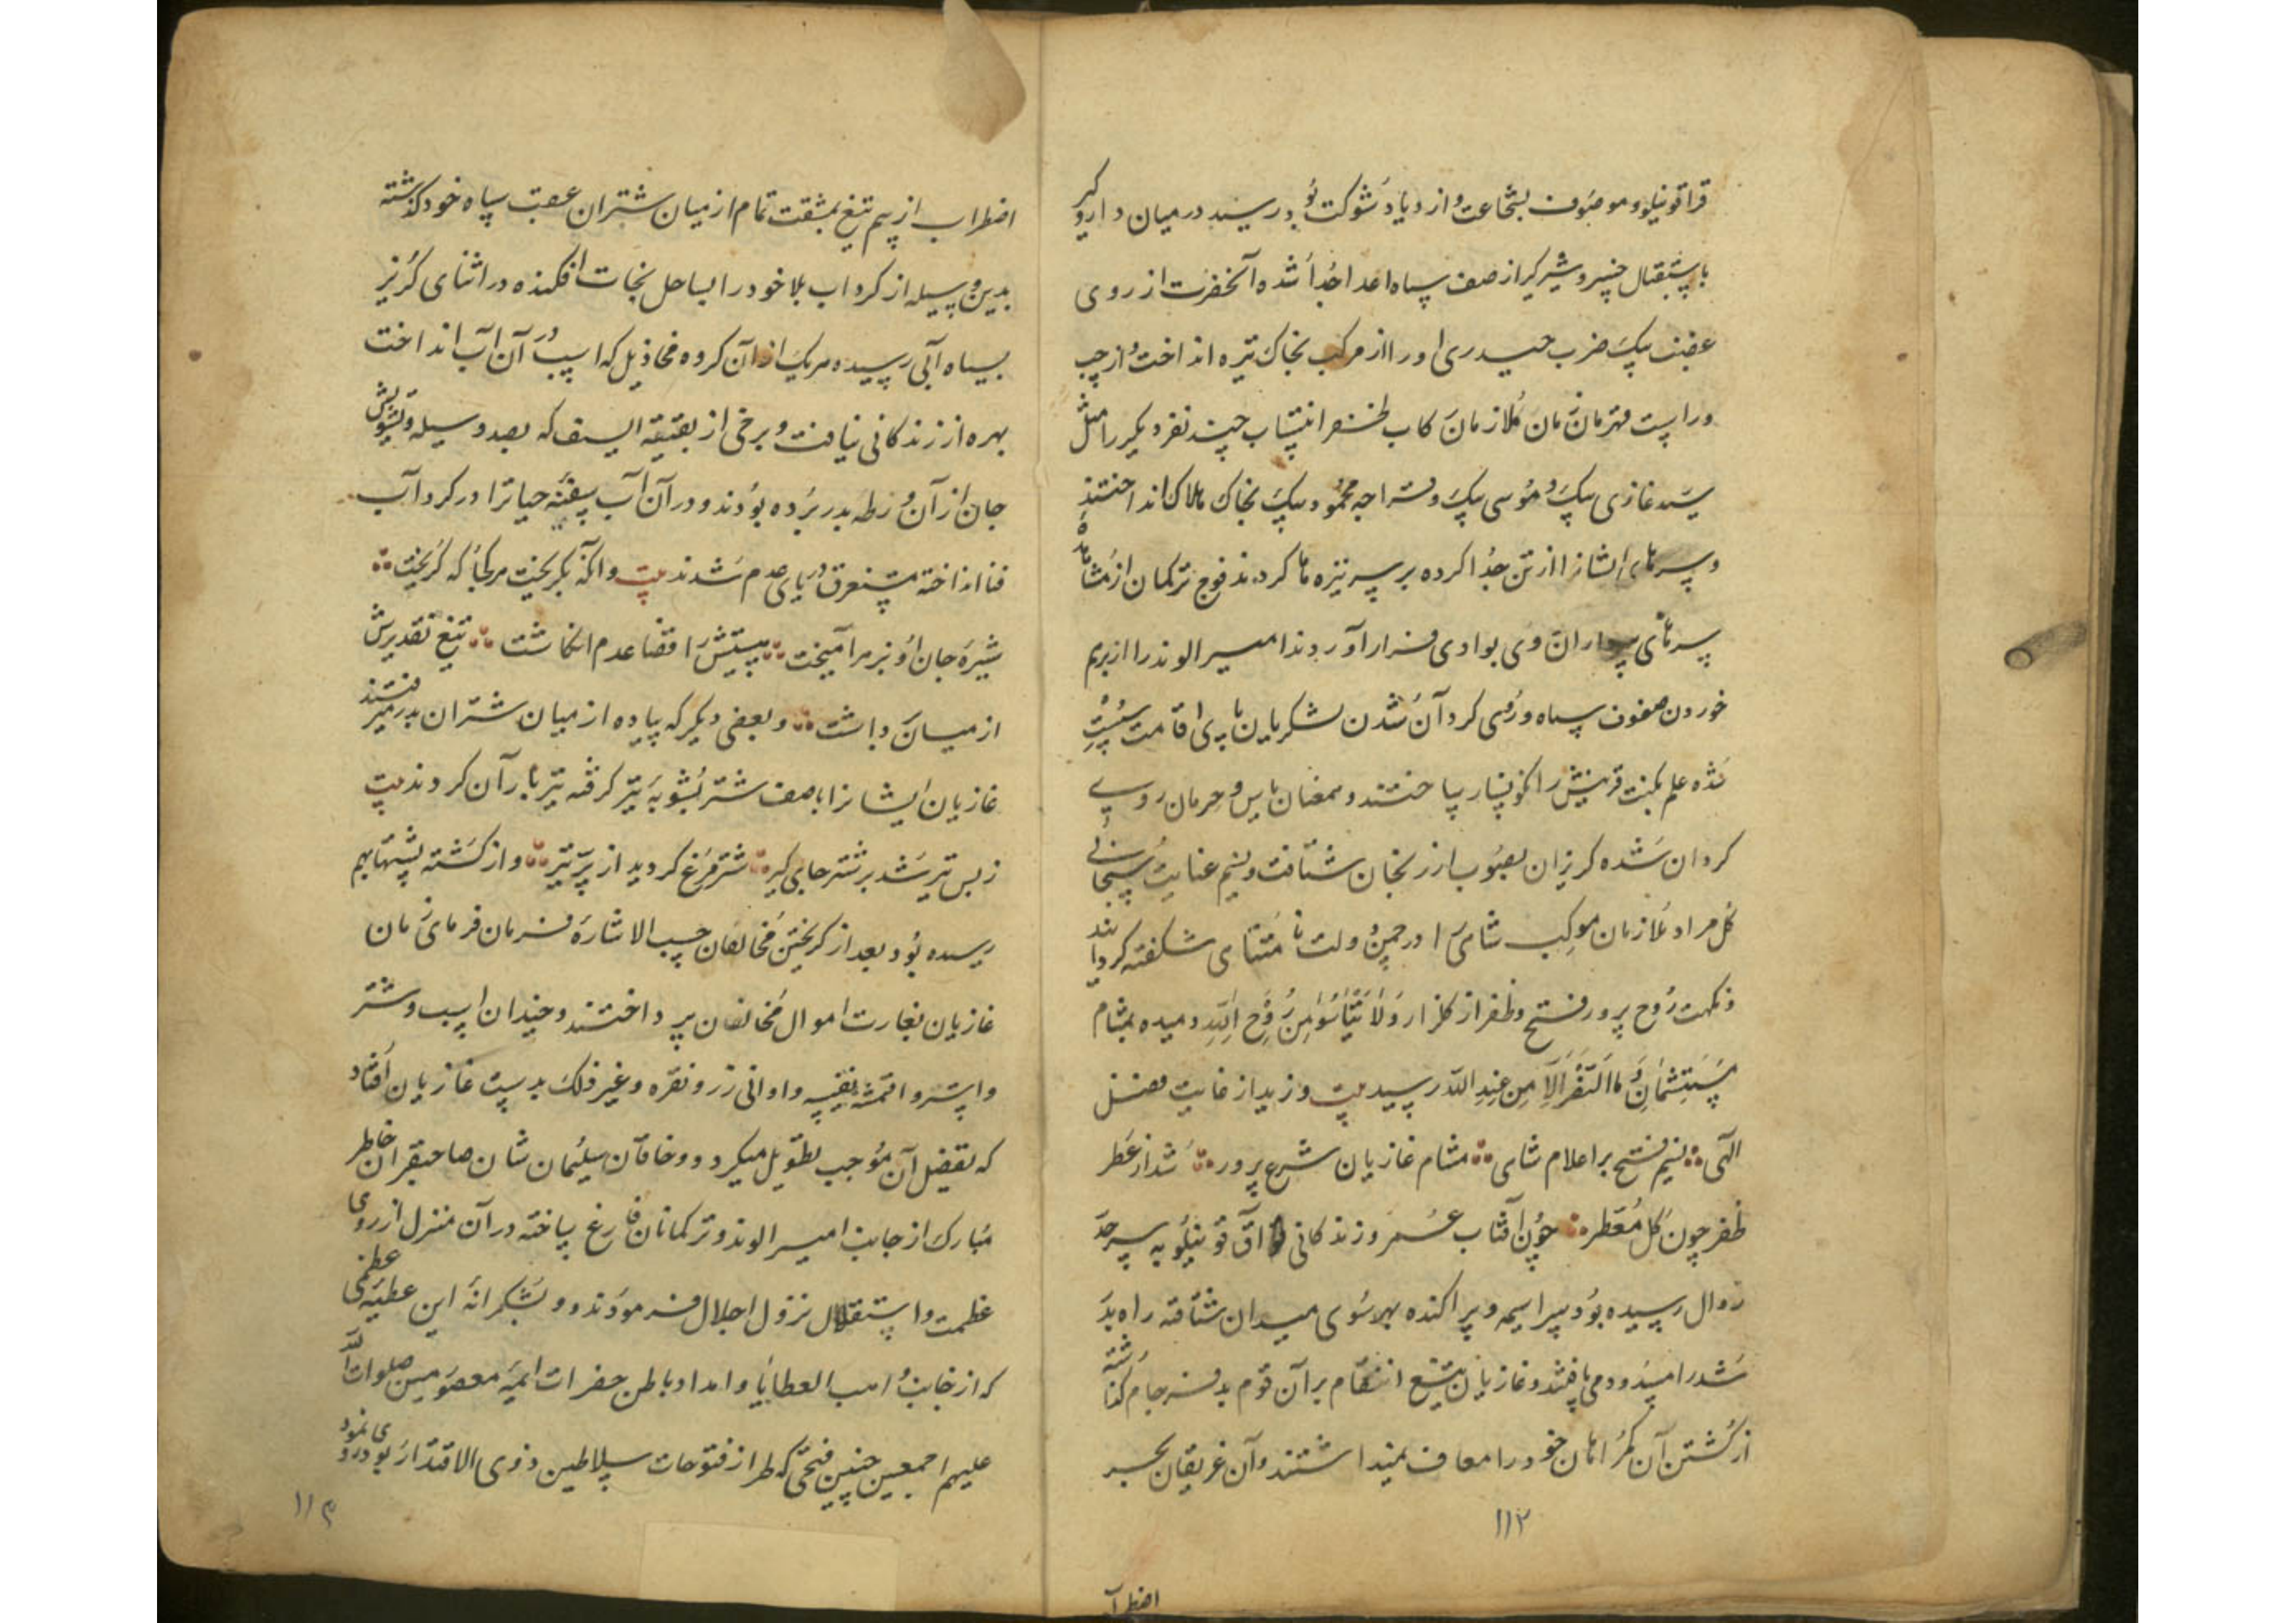 قراقوینلو و موصوف بشجاعت و ازدیاد شوکت بود رسید در میان دار و کیر
باستقبال خسرو شیرکیر از صف سپاه اعدا جدا شده آنحضرت از روی
غضب بیک ضرب حیدری او را از مرکب بخاک تیره انداخت و از چپ
و راست قهرمان زمان ملازمان رکاب ظفر انتساب چند نفر دیکر را مثل
سید غازی بیک و موسی بیک و قراجه محمود بیک بخاک هلاک انداختند
و سرهای ایشانرا از تن جدا کرده بر سر نیزه ها کردند فوج ترکمان از مشاهده
سرهای سرداران وی بوادی فرار آوردند امیر الوند را از برهم
خوردن صفوف سپاه و روی کردان شدن لشکریان پای اقامت سست
شده علم نکبت قرینش را نکونسار ساختند و همعنان یاس و حرمان روی
کردان شده کریزان بصوب ارزنجان شتافت و نسیم عنایت سبحانی
کل مراد ملازمان موکب شاهی را در چمن دولت نامتناهی شکفته کرداند
و نکهت روح پرور فتح و ظفر از کلزار وَلَا تَیْأَسُوا مِنْ رَوْحِ اللهِ دمیده بمشام
مستبشمان وَمَا النَّصْرُ اِلَّا مِنْ عِنْدِ الله رسید بیت وزید از غایت فضل
الهی ∴ نسیم فتح بر اعلام شاهی ∴ مشام غازیان شرع پرور ∴ شد از عطر
ظفر چون کل معطر ∴ چون آفتاب عمر و زندکانی آق قوینلو به سرحد
زوال رسیده بود سراسیمه و پراکنده بهر سوی میدان شتافته راه بدر
شد را مسدود می یافتند و غازیان تیغ انتقام بر آن قوم بد فرجام کذاشته
از کشتن آن کمراهان خود را معاف نمیداشتند و آن غریقان بحر
۱۱۲
اضطراب
اضطراب از بیم تیغ بمشقت تمام از میان شتران عقب سپاه خود کذشته
بدین وسیله از کرداب بلا خود را بساحل نجات افکنده در اثنای کریز
بسیاه آبی رسیده هر یک از آن کروه مخاذیل که اسب در آن آب انداخت
بهره از زندکانی نیافت و برخی از بقیة السیف که بصد وسیله و تشویش
جان از آن ورطه بدر برده بودند و در آن آب سفینه حیاترا در کرداب
فنا انداخته مستغرق دریای عدم شدند بیت وانکه بکریخت هر کجا که کریخت ∴
شیره جان او بزهر آمیخت ∴ پیشش را قضا عدم انکاشت ∴ تیغ تقدیرش
از میان برداشت ∴ و بعضی دیکر که پیاده از میان شتران بدر میرفتند
غازیان ایشانرا با صف شتر بشوبه تیر کرفته تیر باران کردند بیت
ز بس تیر شد بر شتر جای کیر ∴ شتر مرغ کردید از پر تیر ∴ و از کشته پشتها بهم
رسیده بود بعد از کریختن مخالفان حسب الاشاره فرمان فرمای زمان
غازیان بغارت اموال مخالفان پرداختند و چندان اسب و شتر
و استر و اقمشه نفیسه و اوانی زر و نقره و غیر ذلک بدست غازیان افتاد
که تفصیل آن موجب تطویل میکردد و خاقان سلیمان شان صاحبقران خاطر
مبارک از جانب امیر الوند و ترکمانان فارغ ساخته در آن منزل از روی
عظمت و استقلال نزول اجلال فرمودند و بشکرانه این عطیه عظمی
که از جانب واهب العطایا و امداد باطن حضرات ایمه معصومین صلوات الله
علیهم اجمعین چنین فتحی که طراز فتوحات سلاطین ذوی الاقتدار بود روی نمود
۱۱۳